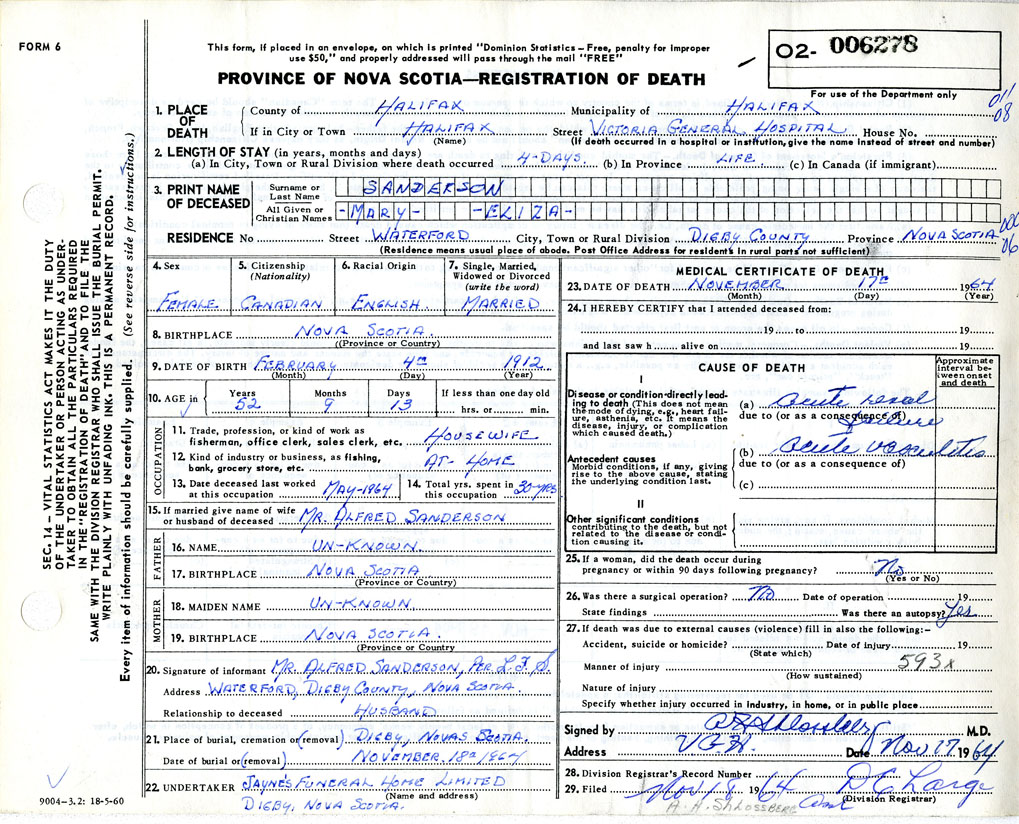 FORM 6
This form, if placed in an envelope, on which is printed "Dominion Statistics – Free, penalty for improper
use $50," and properly addressed will pass through the mail "FREE"
PROVINCE OF NOVA SCOTIA—REGISTRATION OF DEATH
O2- 006278
For use of the Department only
011
08
1. PLACE OF DEATH
County of HALIFAX Municipality of HALIFAX
If in City or Town HALIFAX Street VICTORIA GENERAL HOSPITAL House No.
(Name) (If death occurred in a hospital or institution, give the name instead of street and number)
2. LENGTH OF STAY (in years, months and days)
(a) In City, Town or Rural Division where death occurred 4-DAYS. (b) In Province LIFE (c) In Canada (if immigrant)
3. PRINT NAME OF DECEASED
Surname or Last Name SANDERSON
All Given or Christian Names -MARY- -ELIZA-
RESIDENCE No Street WATERFORD City, Town or Rural Division DIGBY COUNTY Province NOVA SCOTIA
000
06
(Residence means usual place of abode. Post Office Address for residents in rural parts not sufficient)
4. Sex FEMALE.
5. Citizenship (Nationality) CANADIAN
6. Racial Origin ENGLISH
7. Single, Married, Widowed or Divorced (write the word) MARRIED
8. BIRTHPLACE NOVA SCOTIA
(Province or Country)
9. DATE OF BIRTH FEBRUARY 4TH 1912
(Month) (Day) (Year)
10. AGE in Years 52 Months 9 Days 13 If less than one day old hrs. or min.
OCCUPATION
11. Trade, profession, or kind of work as
fisherman, office clerk, sales clerk, etc. HOUSEWIFE
12. Kind of industry or business, as fishing,
bank, grocery store, etc. AT-HOME
13. Date deceased last worked
at this occupation MAY-1964
14. Total yrs. spent in
this occupation 30-YRS.
15. If married give name of wife
or husband of deceased MR. ALFRED SANDERSON
FATHER
16. NAME UN-KNOWN.
17. BIRTHPLACE NOVA SCOTIA
(Province or Country)
MOTHER
18. MAIDEN NAME UN-KNOWN
19. BIRTHPLACE NOVA SCOTIA.
(Province or Country)
20. Signature of informant MR. ALFRED SANDERSON, PER L.F.S.
Address WATERFORD, DIGBY COUNTY, NOVA SCOTIA.
Relationship to deceased HUSBAND
21. Place of burial, cremation or (removal) DIGBY, NOVAS SCOTIA.
Date of burial or (removal) NOVEMBER 18TH 1964
22. UNDERTAKER JAYNE'S FUNERAL HOME LIMITED
(Name and address)
DIGBY, NOVA SCOTIA.
9004-3.2: 18-5-60
MEDICAL CERTIFICATE OF DEATH
23. DATE OF DEATH NOVEMBER 17TH 1964
(Month) (Day) (Year)
24. I HEREBY CERTIFY that I attended deceased from:
19 to 19
and last saw h alive on 19
CAUSE OF DEATH
Approximate interval between onset and death
I
Disease or condition directly leading to death (This does not mean the mode of dying, e.g., heart failure, asthenia, etc. It means the disease, injury, or complication which caused death.)
(a) acute renal failure
due to (or as a consequence of)
Antecedent causes
Morbid conditions, if any, giving rise to the above cause, stating the underlying condition last.
(b) acute vasculitis
due to (or as a consequence of)
(c)
II
Other significant conditions
contributing to the death, but not related to the disease or condition causing it.
25. If a woman, did the death occur during
pregnancy or within 90 days following pregnancy? No
(Yes or No)
26. Was there a surgical operation? No Date of operation 19
State findings Was there an autopsy? Yes
27. If death was due to external causes (violence) fill in also the following:–
Accident, suicide or homicide? Date of injury 19
(State which)
593x
Manner of injury
(How sustained)
Nature of injury
Specify whether injury occurred in Industry, in home, or in public place
Signed by M.D.
Address V G H. Date Nov 17 1964
28. Division Registrar's Record Number
29. Filed Nov 18 1964 D C Large
(Division Registrar)
A. H. SHLOSSBERG
SEC. 14 – VITAL STATISTICS ACT MAKES IT THE DUTY
OF THE UNDERTAKER OR PERSON ACTING AS UNDER-
TAKER TO OBTAIN ALL THE PARTICULARS REQUIRED
IN THE "REGISTRATION OF DEATH" AND TO FILE THE
SAME WITH THE DIVISION REGISTRAR WHO SHALL ISSUE THE BURIAL PERMIT.
WRITE PLAINLY WITH UNFADING INK. THIS IS A PERMANENT RECORD.
Every item of information should be carefully supplied. (See reverse side for instructions.)